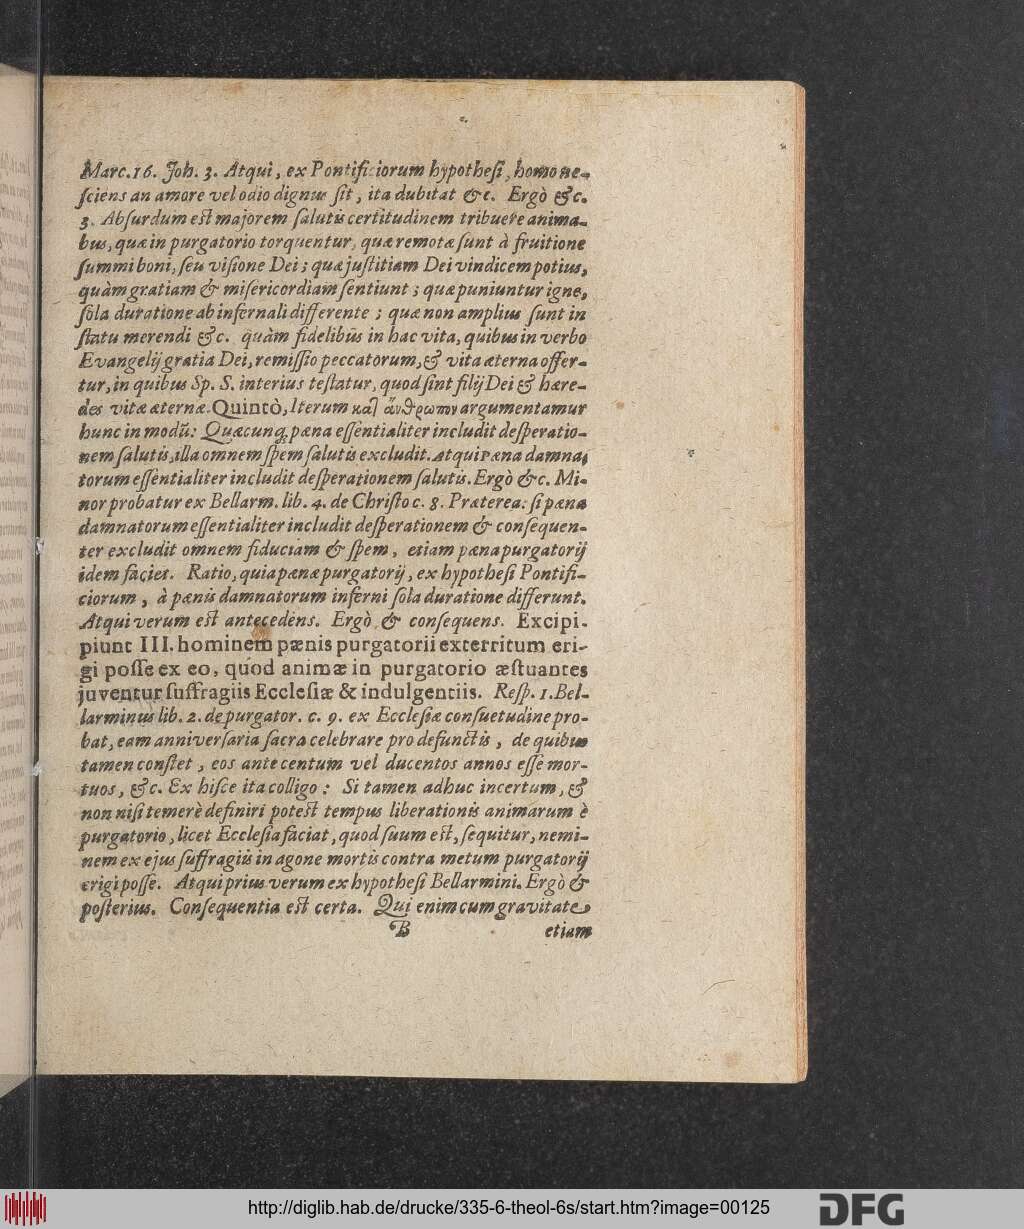 Marc.16. Joh. 3. Atqui, ex Pontificiorum hypothesi, homo ne-
ſciens an amore vel odio dignus ſit, ita dubitat &c. Ergò &c.
3. Abſurdum eſt majorem ſalutis certitudinem tribuere anima-
bus, quæ in purgatorio torquentur, quæ remotæ ſunt à fruitione
ſummi boni, ſeu viſione Dei; quæ juſtitiam Dei vindicem potius,
quàm gratiam & miſericordiam ſentiunt; quæ puniuntur igne,
ſola duratione ab infernali differente; quæ non amplius ſunt in
ſtatu merendi &c. quàm fidelibus in hac vita, quibus in verbo
Evangelij gratia Dei, remiſſio peccatorum, & vita æterna offer-
tur, in quibus Sp. S. interius teſtatur, quod ſint filij Dei & hære-
des vitæ æternæ. Quintò, Iterum κατ' ἄνθρωπον argumentamur
hunc in modũ: Quæcunq; pæna eſſentialiter includit deſperatio-
nem ſalutis, illa omnem ſpem ſalutis excludit. Atqui pæna damna-
torum eſſentialiter includit deſperationem ſalutis. Ergò &c. Mi-
nor probatur ex Bellarm. lib. 4. de Chriſto c. 8. Præterea: ſi pæna
damnatorum eſſentialiter includit deſperationem & conſequen-
ter excludit omnem fiduciam & ſpem, etiam pæna purgatorij
idem faciet. Ratio, quia pænæ purgatorij, ex hypotheſi Pontifi-
ciorum, à pænis damnatorum inferni ſola duratione differunt.
Atqui verum eſt antecedens. Ergò & conſequens. Excipi-
piunt III. hominem pænis purgatorii exterritum eri-
gi poſſe ex eo, quod animæ in purgatorio æſtuantes
juventur ſuffragiis Eccleſiæ & indulgentiis. Reſp. 1. Bel-
larminus lib. 2. de purgator. c. 9. ex Eccleſiæ conſuetudine pro-
bat, eam anniverſaria ſacra celebrare pro defunctis, de quibus
tamen conſtet, eos ante centum vel ducentos annos eſſe mor-
tuos, &c. Ex hiſce ita colligo: Si tamen adhuc incertum, &
non niſi temerè definiri poteſt tempus liberationis animarum è
purgatorio, licet Eccleſia faciat, quod ſuum eſt, ſequitur, nemi-
nem ex ejus ſuffragiis in agone mortis contra metum purgatorij
erigi poſſe. Atqui prius verum ex hypotheſi Bellarmini. Ergò &
poſterius. Conſequentia eſt certa. Qui enim cum gravitate
B etiam
http://diglib.hab.de/drucke/335-6-theol-6s/start.htm?image=00125 DFG